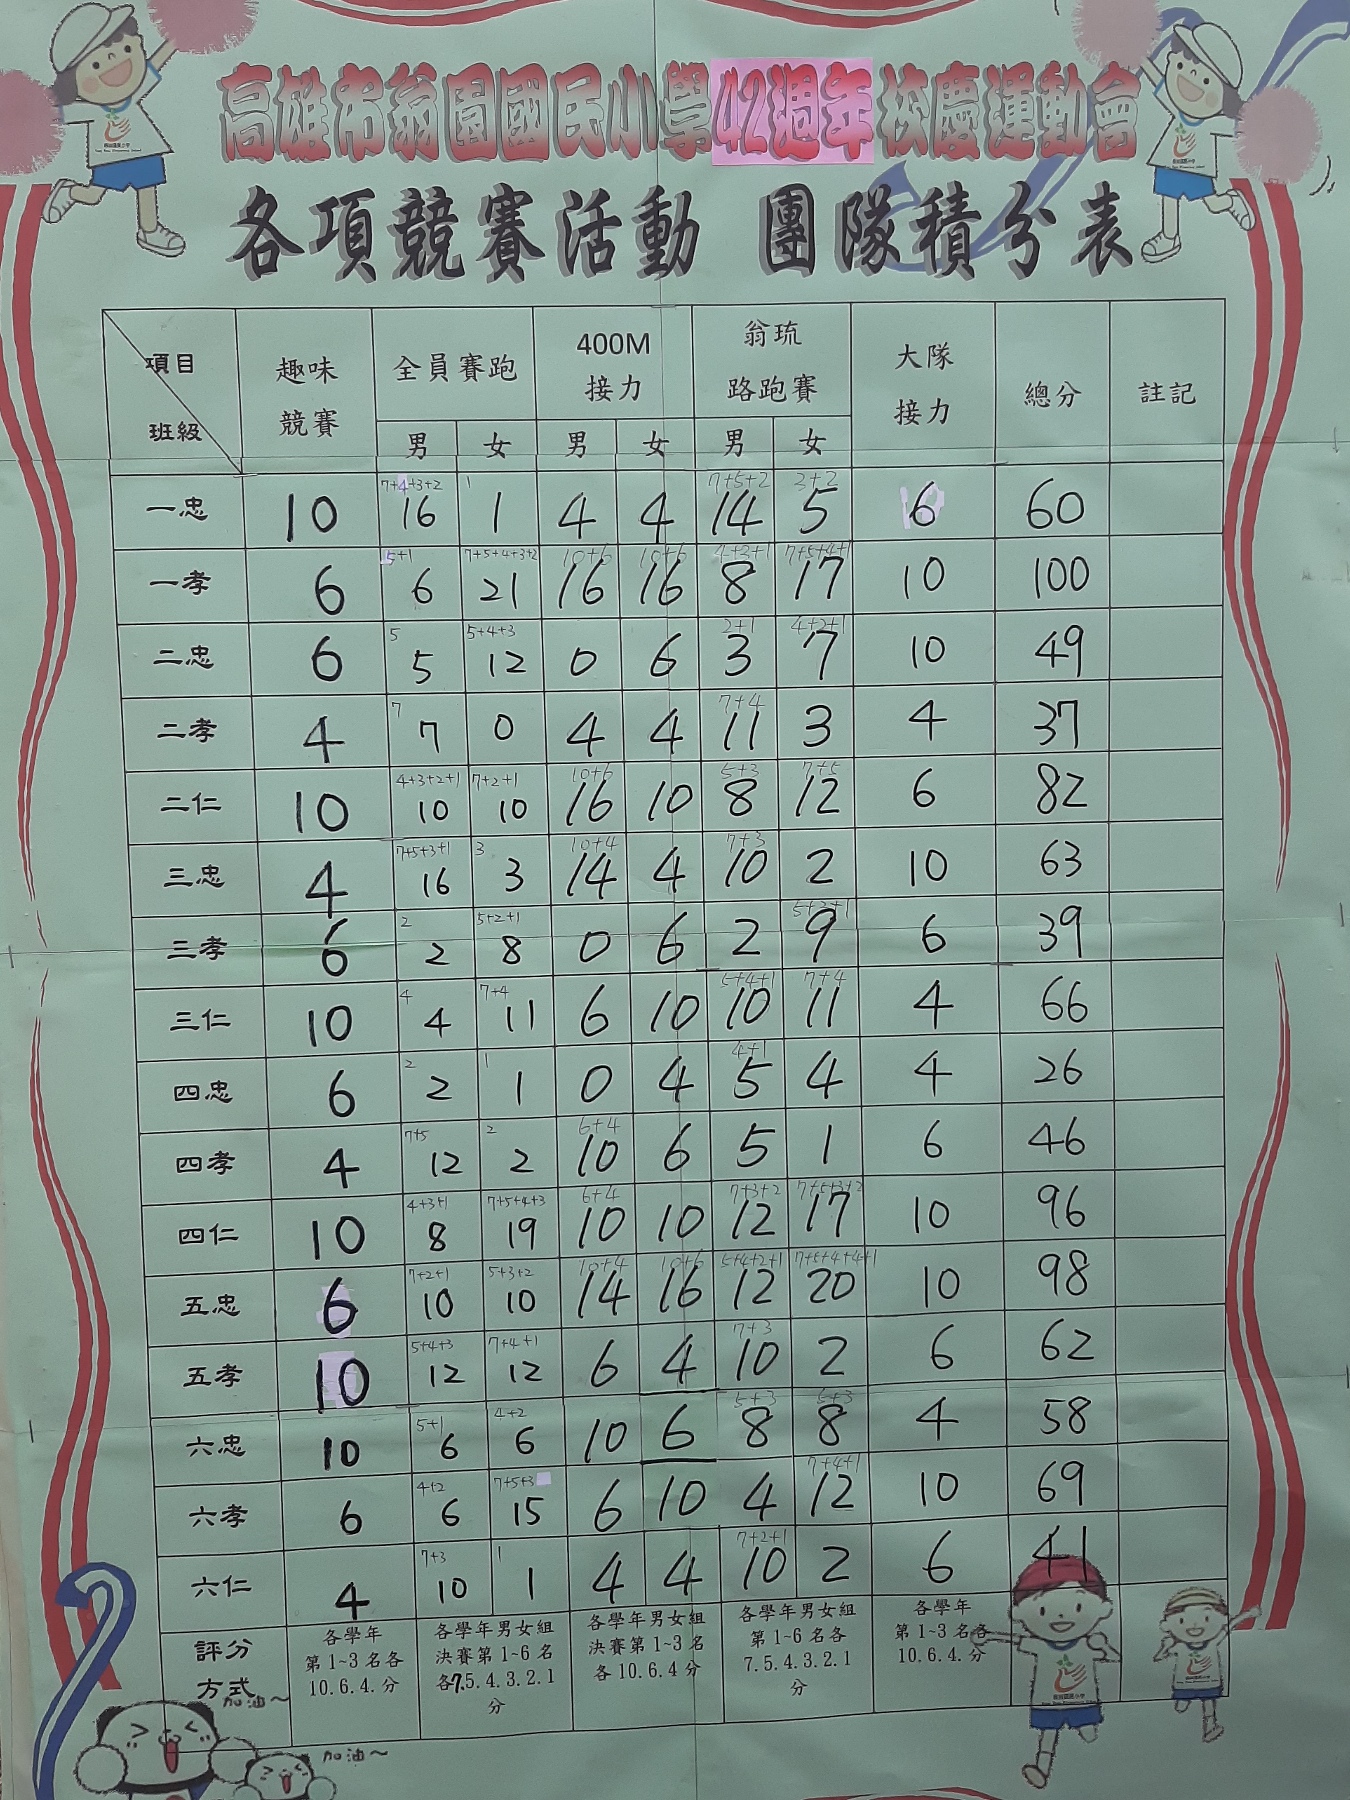 高雄市翁園國民小學42週年校慶運動會
各項競賽活動 團隊積分表
項目 班級 趣味競賽 全員賽跑 400M接力 翁琉路跑賽 大隊接力 總分 註記
男 女 男 女 男 女
7+4+3+2 1 7+5+2 3+2
一忠 10 16 1 4 4 14 5 6 60
5+1 7+5+4+3+2 10+6 10+6 4+3+1 7+5+4+1
一孝 6 6 21 16 16 8 17 10 100
5 5+4+3 2+1 4+2+1
二忠 6 5 12 0 6 3 7 10 49
7 7+4
二孝 4 7 0 4 4 11 3 4 37
4+3+2+1 7+2+1 10+6 5+3 7+5
二仁 10 10 10 16 10 8 12 6 82
7+5+3+1 3 10+4 7+3
三忠 4 16 3 14 4 10 2 10 63
2 5+2+1
三孝 6 2 8 0 6 2 9 6 39
4 7+4 5+4+1 7+4
三仁 10 4 11 6 10 10 11 4 66
2 1 4+1
四忠 6 2 1 0 4 5 4 4 26
7+5 2 6+4
四孝 4 12 2 10 6 5 1 6 46
4+3+1 7+5+4+3 6+4 7+3+2 7+5+3+2
四仁 10 8 19 10 10 12 17 10 96
7+2+1 5+3+2 10+4 10+6 5+4+2+1
五忠 6 10 10 14 16 12 20 10 98
5+4+3 7+4+1 7+3
五孝 10 12 12 6 4 10 2 6 62
5+1 4+2 5+3 5+3
六忠 10 6 6 10 6 8 8 4 58
4+2 7+5+3 7+4+1
六孝 6 6 15 6 10 4 12 10 69
7+3 1 7+2+1
六仁 4 10 1 4 4 10 2 6 41
評分方式
各學年
第1~3名各
10.6.4.分
各學年男女組
決賽第1~6名
各7.5.4.3.2.1
分
各學年男女組
決賽第1~3名
各10.6.4分
各學年男女組
第1~6名各
7.5.4.3.2.1
分
各學年
第1~3名各
10.6.4.分
加油~
加油~